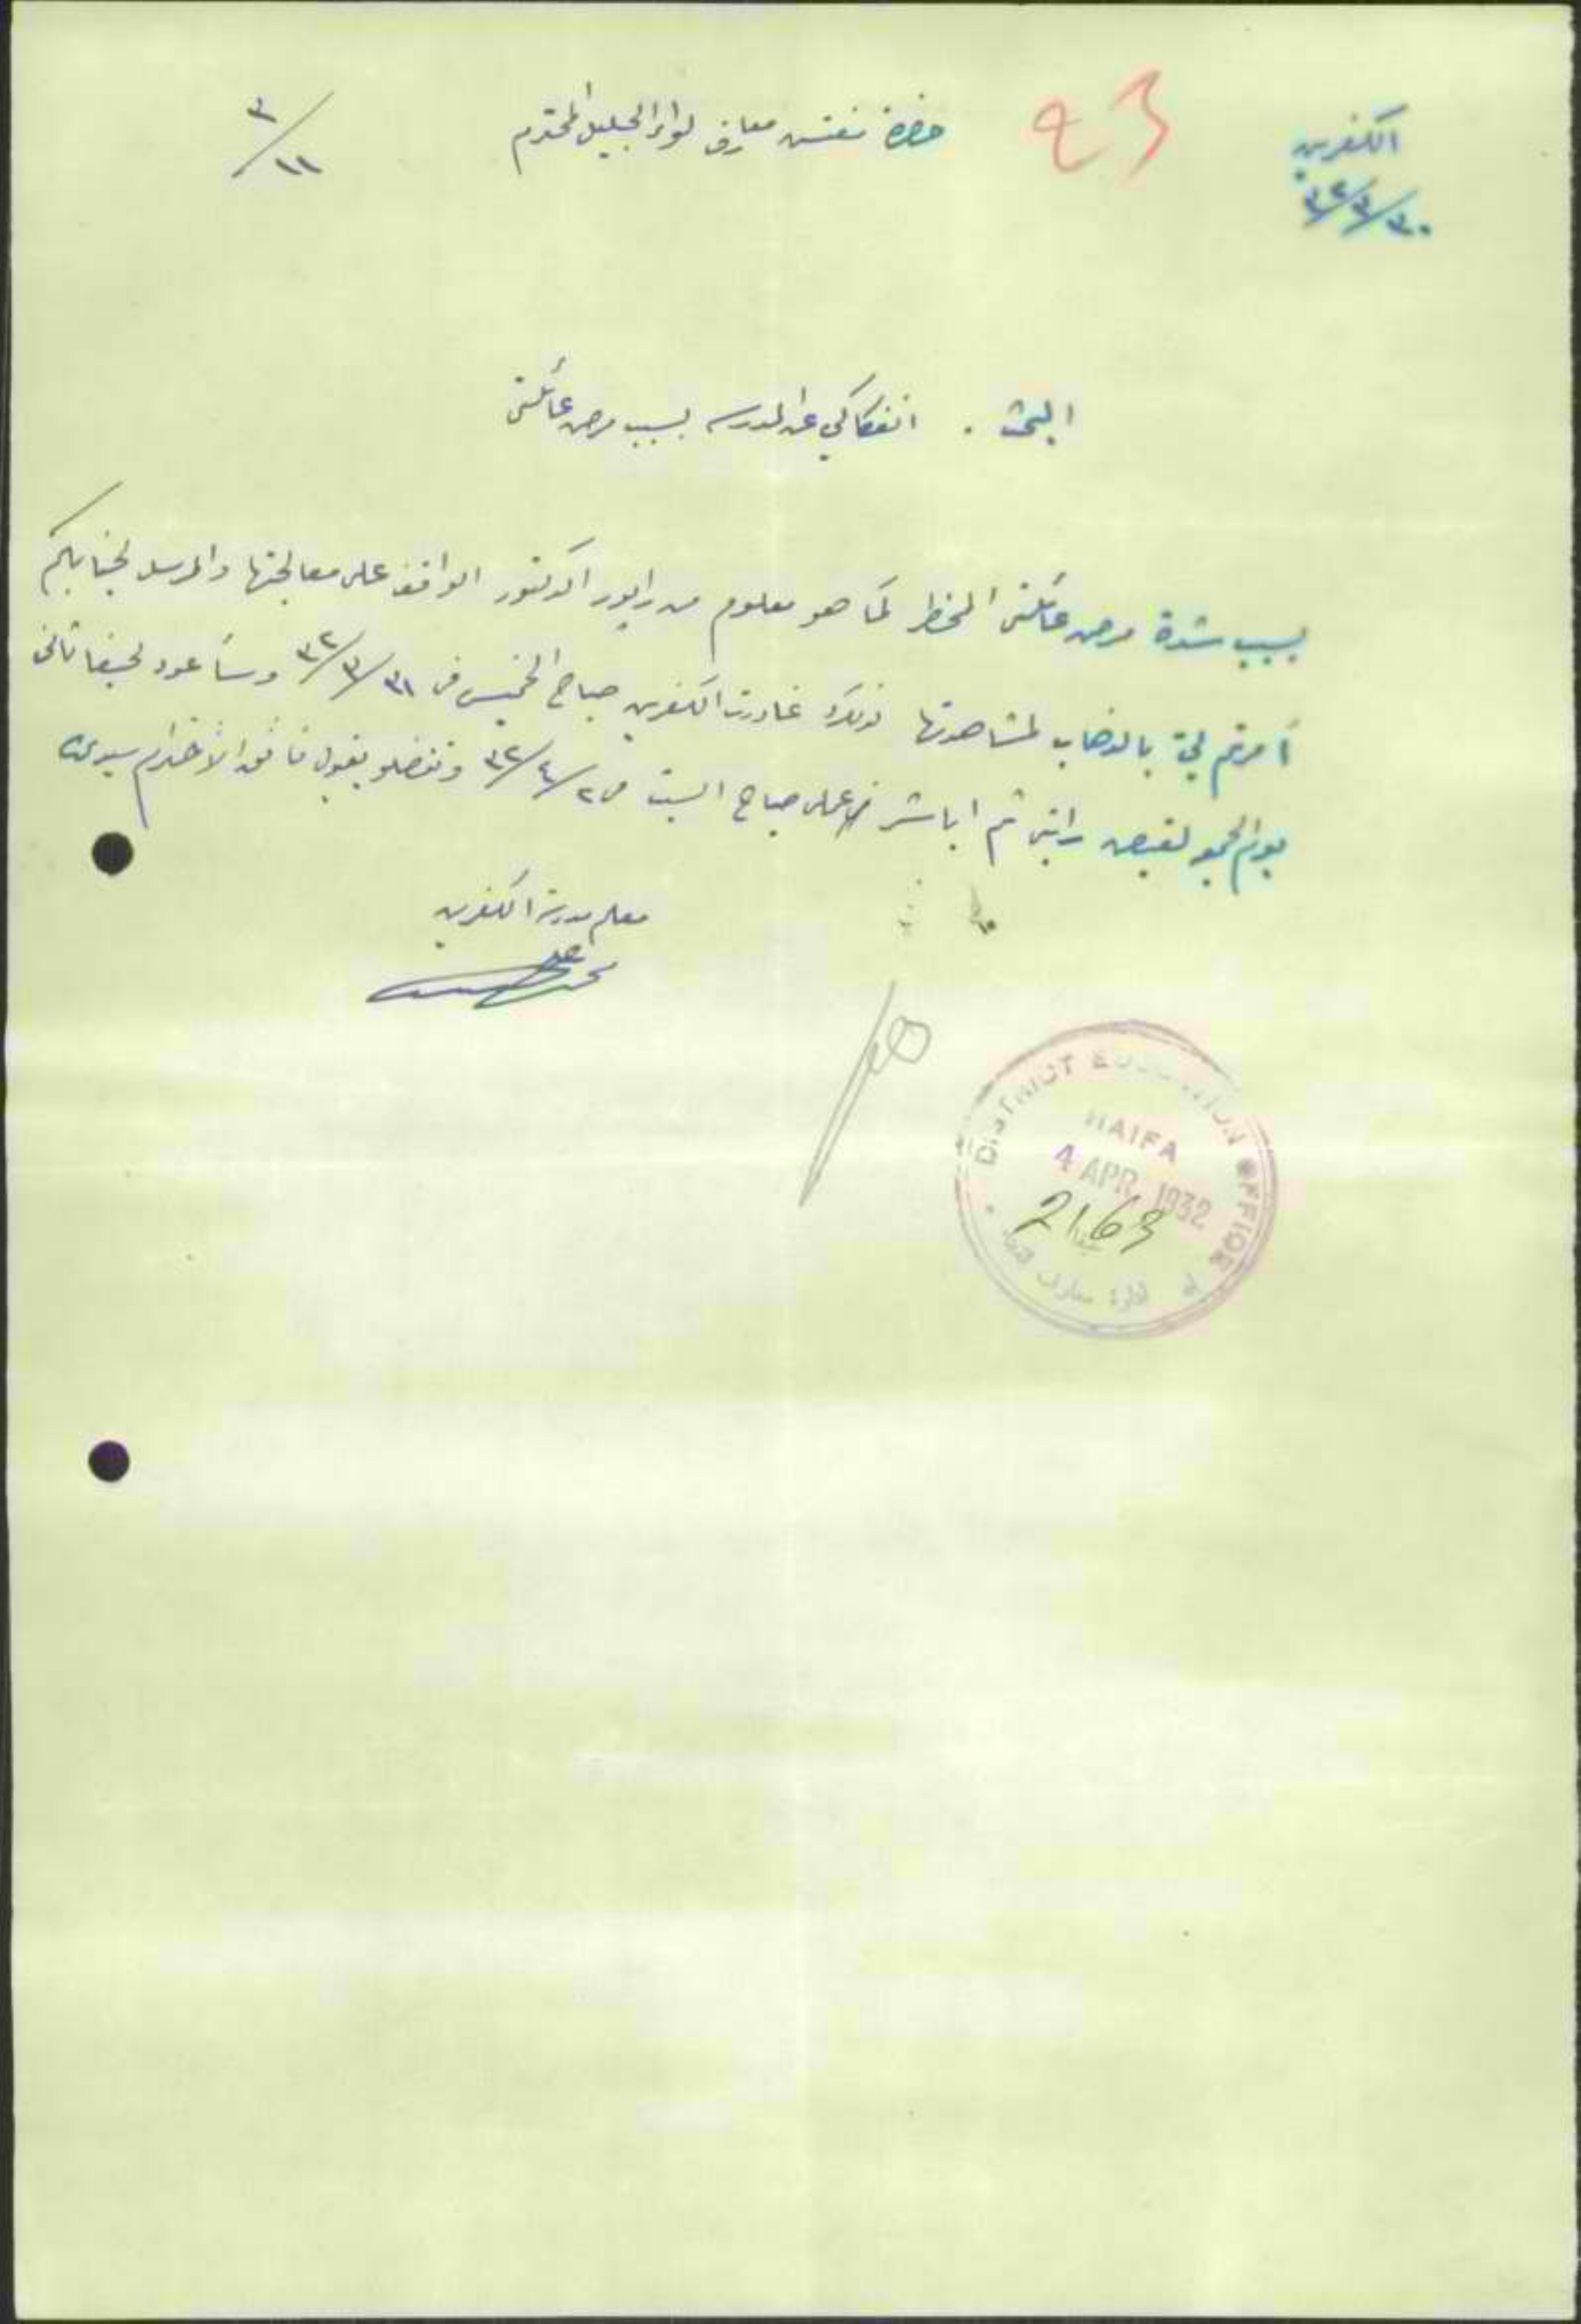 الكفرين
٣٠/٣/٣٢
23
حضرة مفتش معارف لواء الجليل المحترم
٣/١١
البحث . انفكاكي عن المدرسه بسبب مرض عائلتي
بسبب شدة مرض عائلتي الخطر كما هو معلوم من رابور الدكتور الواقف على معالجتها والمرسل لجنابكم
أمرتم لي بالذهاب لمشاهدتها لذلك غادرت الكفرين صباح الخميس في ٣١/٣/٣٢ وسأعود لحيفا ثاني
يوم الجمعة لقبض راتبي ثم اباشر عملي صباح السبت في ٢/٤/٣٢ وتفضلو بقبول فائق الاحترام سيدي
معلم مدرسة الكفرين
محمد علي
DISTRICT EDUCATION OFFICE
HAIFA
4 APR 1932
2163
ادارة معارف